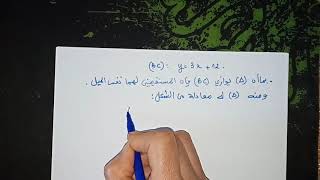 (BC): y = 3x + 12.
. بما أن (Δ) يوازي (BC) فإن المستقيمين لهما نفس الميل.
ومنه (Δ) له معادلة من الشكل: